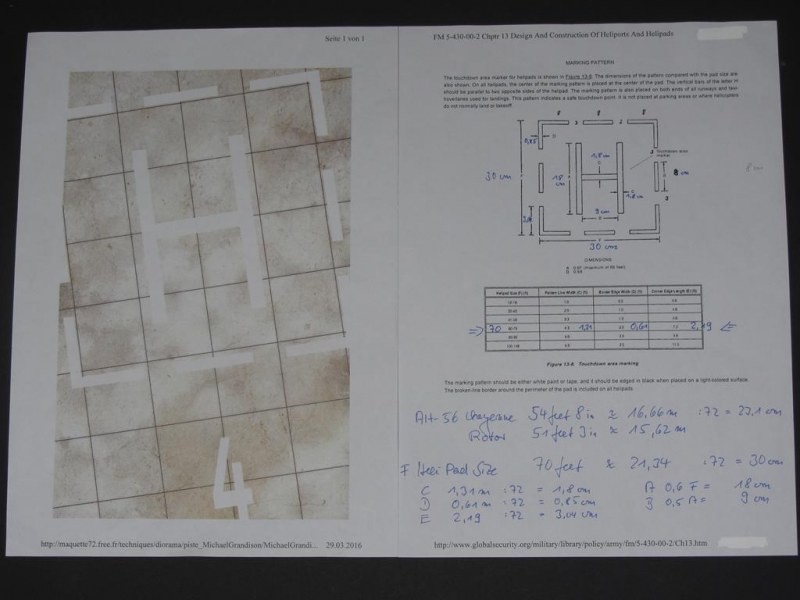 Seite 1 von 1
H
4
http://maquette72.free.fr/techniques/diorama/piste_MichaelGrandison/MichaelGrandi... 29.03.2016
FM 5-430-00-2 Chptr 13 Design And Construction Of Heliports And Helipads
MARKING PATTERN
The touchdown area marker for helipads is shown in Figure 13-8. The dimensions of the pattern compared with the pad size are
also shown. On all helipads, the center of the marking pattern is placed at the center of the pad. The vertical bars of the letter H
should be parallel to two opposite sides of the helipad. The marking pattern is also placed on both ends of all runways and taxi
hoverlanes used for landings. This pattern indicates a safe touchdown point. It is not placed at parking areas or where helicopters
do not normally land or takeoff.
0,85
1,8 cm
Touchdown area
marker
30 cm
18
cm
8 cm
1,8 cm
9 cm
30 cm
DIMENSIONS
Helipad Size (F) (ft) Pattern Line Width (C) (ft) Border Edge Width (D) (ft) Corner Edge Length (E) (ft)
70 0,61 2,19
Figure 13-8. Touchdown area marking
The marking pattern should be either white paint or tape, and it should be edged in black when placed on a light-colored surface.
The broken-line border around the perimeter of the pad is included on all helipads.
AH-56 Cheyenne 54 feet 8 in ≈ 16,66 m :72 = 23,1 cm
Rotor 51 feet 3 in ≈ 15,62 m
F Heli Pad Size 70 feet ≈ 21,34 :72 = 30 cm
C 1,31 m :72 = 1,8 cm A 0,6 F = 18 cm
D 0,61 m :72 = 0,85 cm B 0,5 A = 9 cm
E 2,19 :72 = 3,04 cm
http://www.globalsecurity.org/military/library/policy/army/fm/5-430-00-2/Ch13.htm